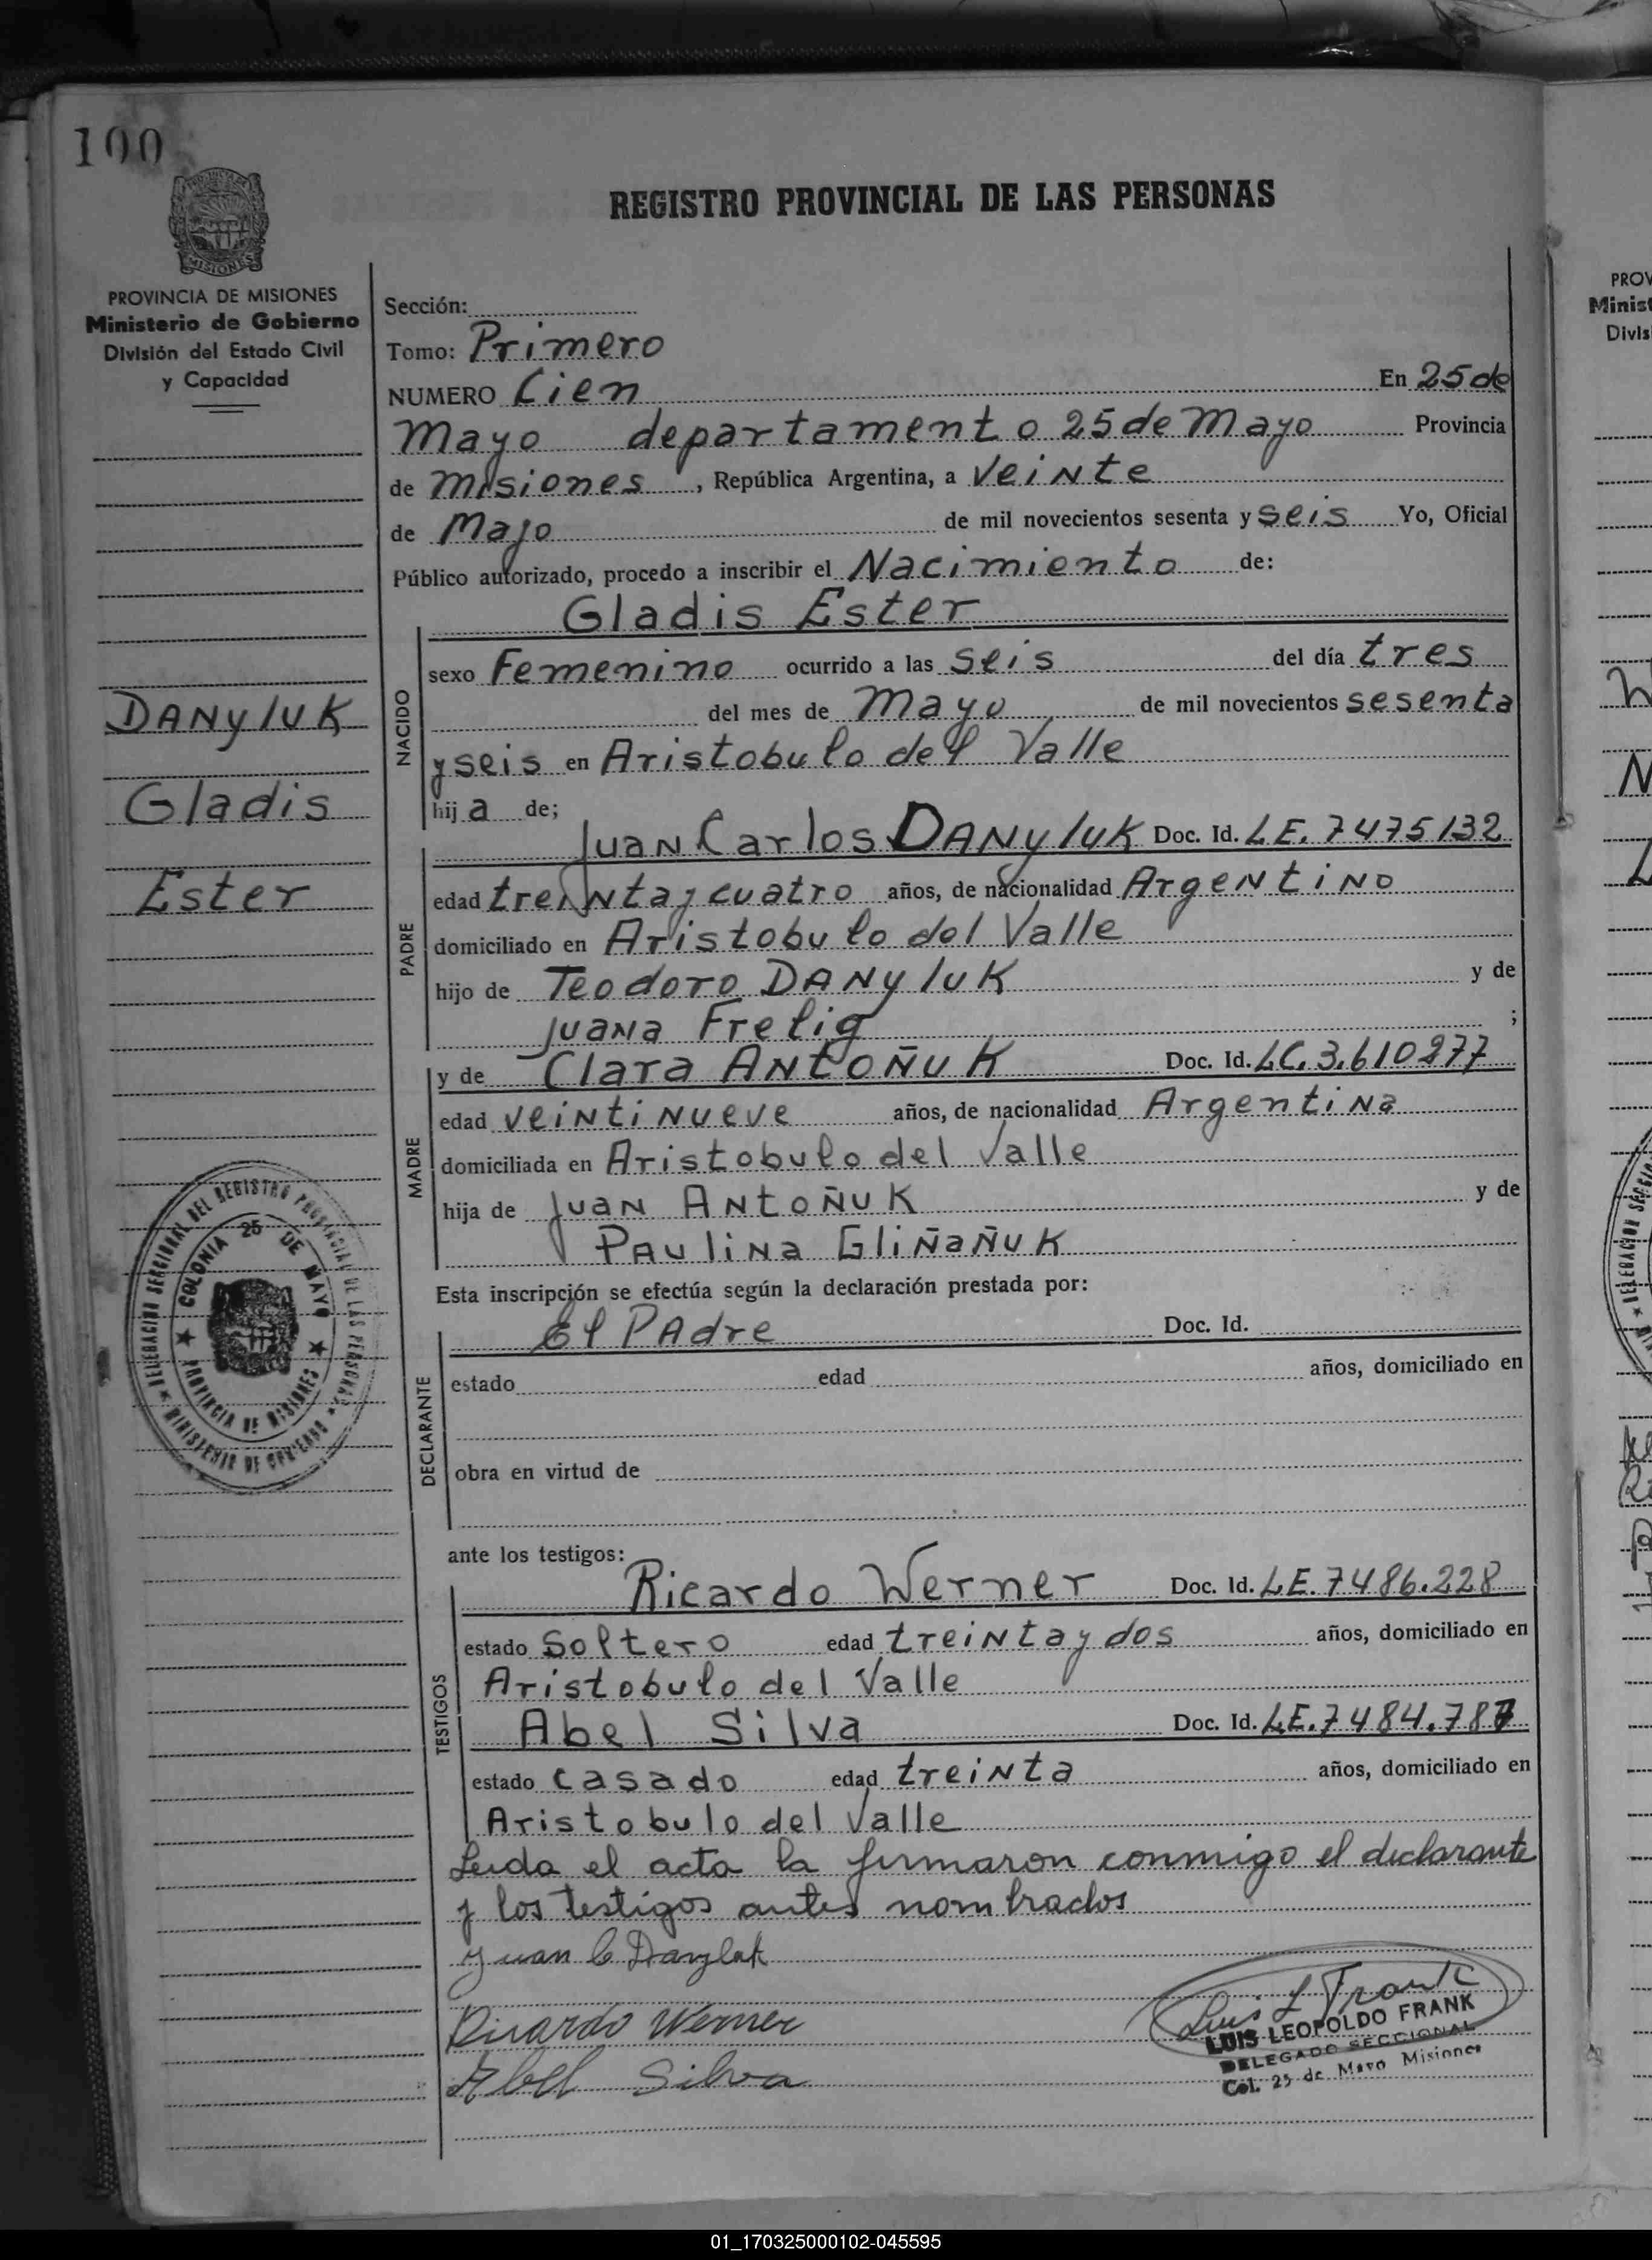 100
MISIONES
PROVINCIA DE MISIONES
Ministerio de Gobierno
División del Estado Civil
y Capacidad
DANYlUK
Gladis
Ester
DELEGACION SECCIONAL DEL REGISTRO PROVINCIAL DE LAS PERSONAS
MINISTERIO DE GOBIERNO
COLONIA 25 DE MAYO
PROVINCIA DE MISIONES
REGISTRO PROVINCIAL DE LAS PERSONAS
Sección:
Tomo: Primero
NUMERO Cien En 25 de
Mayo departamento 25 de Mayo Provincia
de Misiones, República Argentina, a Veinte
de Mayo de mil novecientos sesenta y seis Yo, Oficial
Público autorizado, procedo a inscribir el Nacimiento de:
Gladis Ester
NACIDO
sexo Femenino ocurrido a las seis del día tres
del mes de Mayo de mil novecientos sesenta
y seis en Aristobulo del Valle
hija de;
PADRE
Juan Carlos DANYlUK Doc. Id. LE. 7475132
edad treinta y cuatro años, de nacionalidad Argentino
domiciliado en Aristobulo del Valle
hijo de Teodoro DANYlUK y de
Juana Frelig ;
MADRE
y de Clara ANTOÑUK Doc. Id. LC. 3.610277
edad veintinueve años, de nacionalidad Argentina
domiciliada en Aristobulo del Valle
hija de Juan ANTOÑUK y de
PAulina GliÑaÑuK
Esta inscripción se efectúa según la declaración prestada por:
DECLARANTE
El PAdre Doc. Id.
estado edad años, domiciliado en
obra en virtud de
ante los testigos:
TESTIGOS
Ricardo Werner Doc. Id. LE. 7486.228
estado Soltero edad treinta y dos años, domiciliado en
Aristobulo del Valle
Abel Silva Doc. Id. LE. 7484.787
estado casado edad treinta años, domiciliado en
Aristobulo del Valle
Leida el acta la firmaron conmigo el declarante
y los testigos antes nombrados
Juan C Danyluk
Ricardo Werner
Abel Silva
Luis L Frank
LUIS LEOPOLDO FRANK
DELEGADO SECCIONAL
Col. 25 de Mayo Misiones
PROV
Minist
Divis
01_170325000102-045595